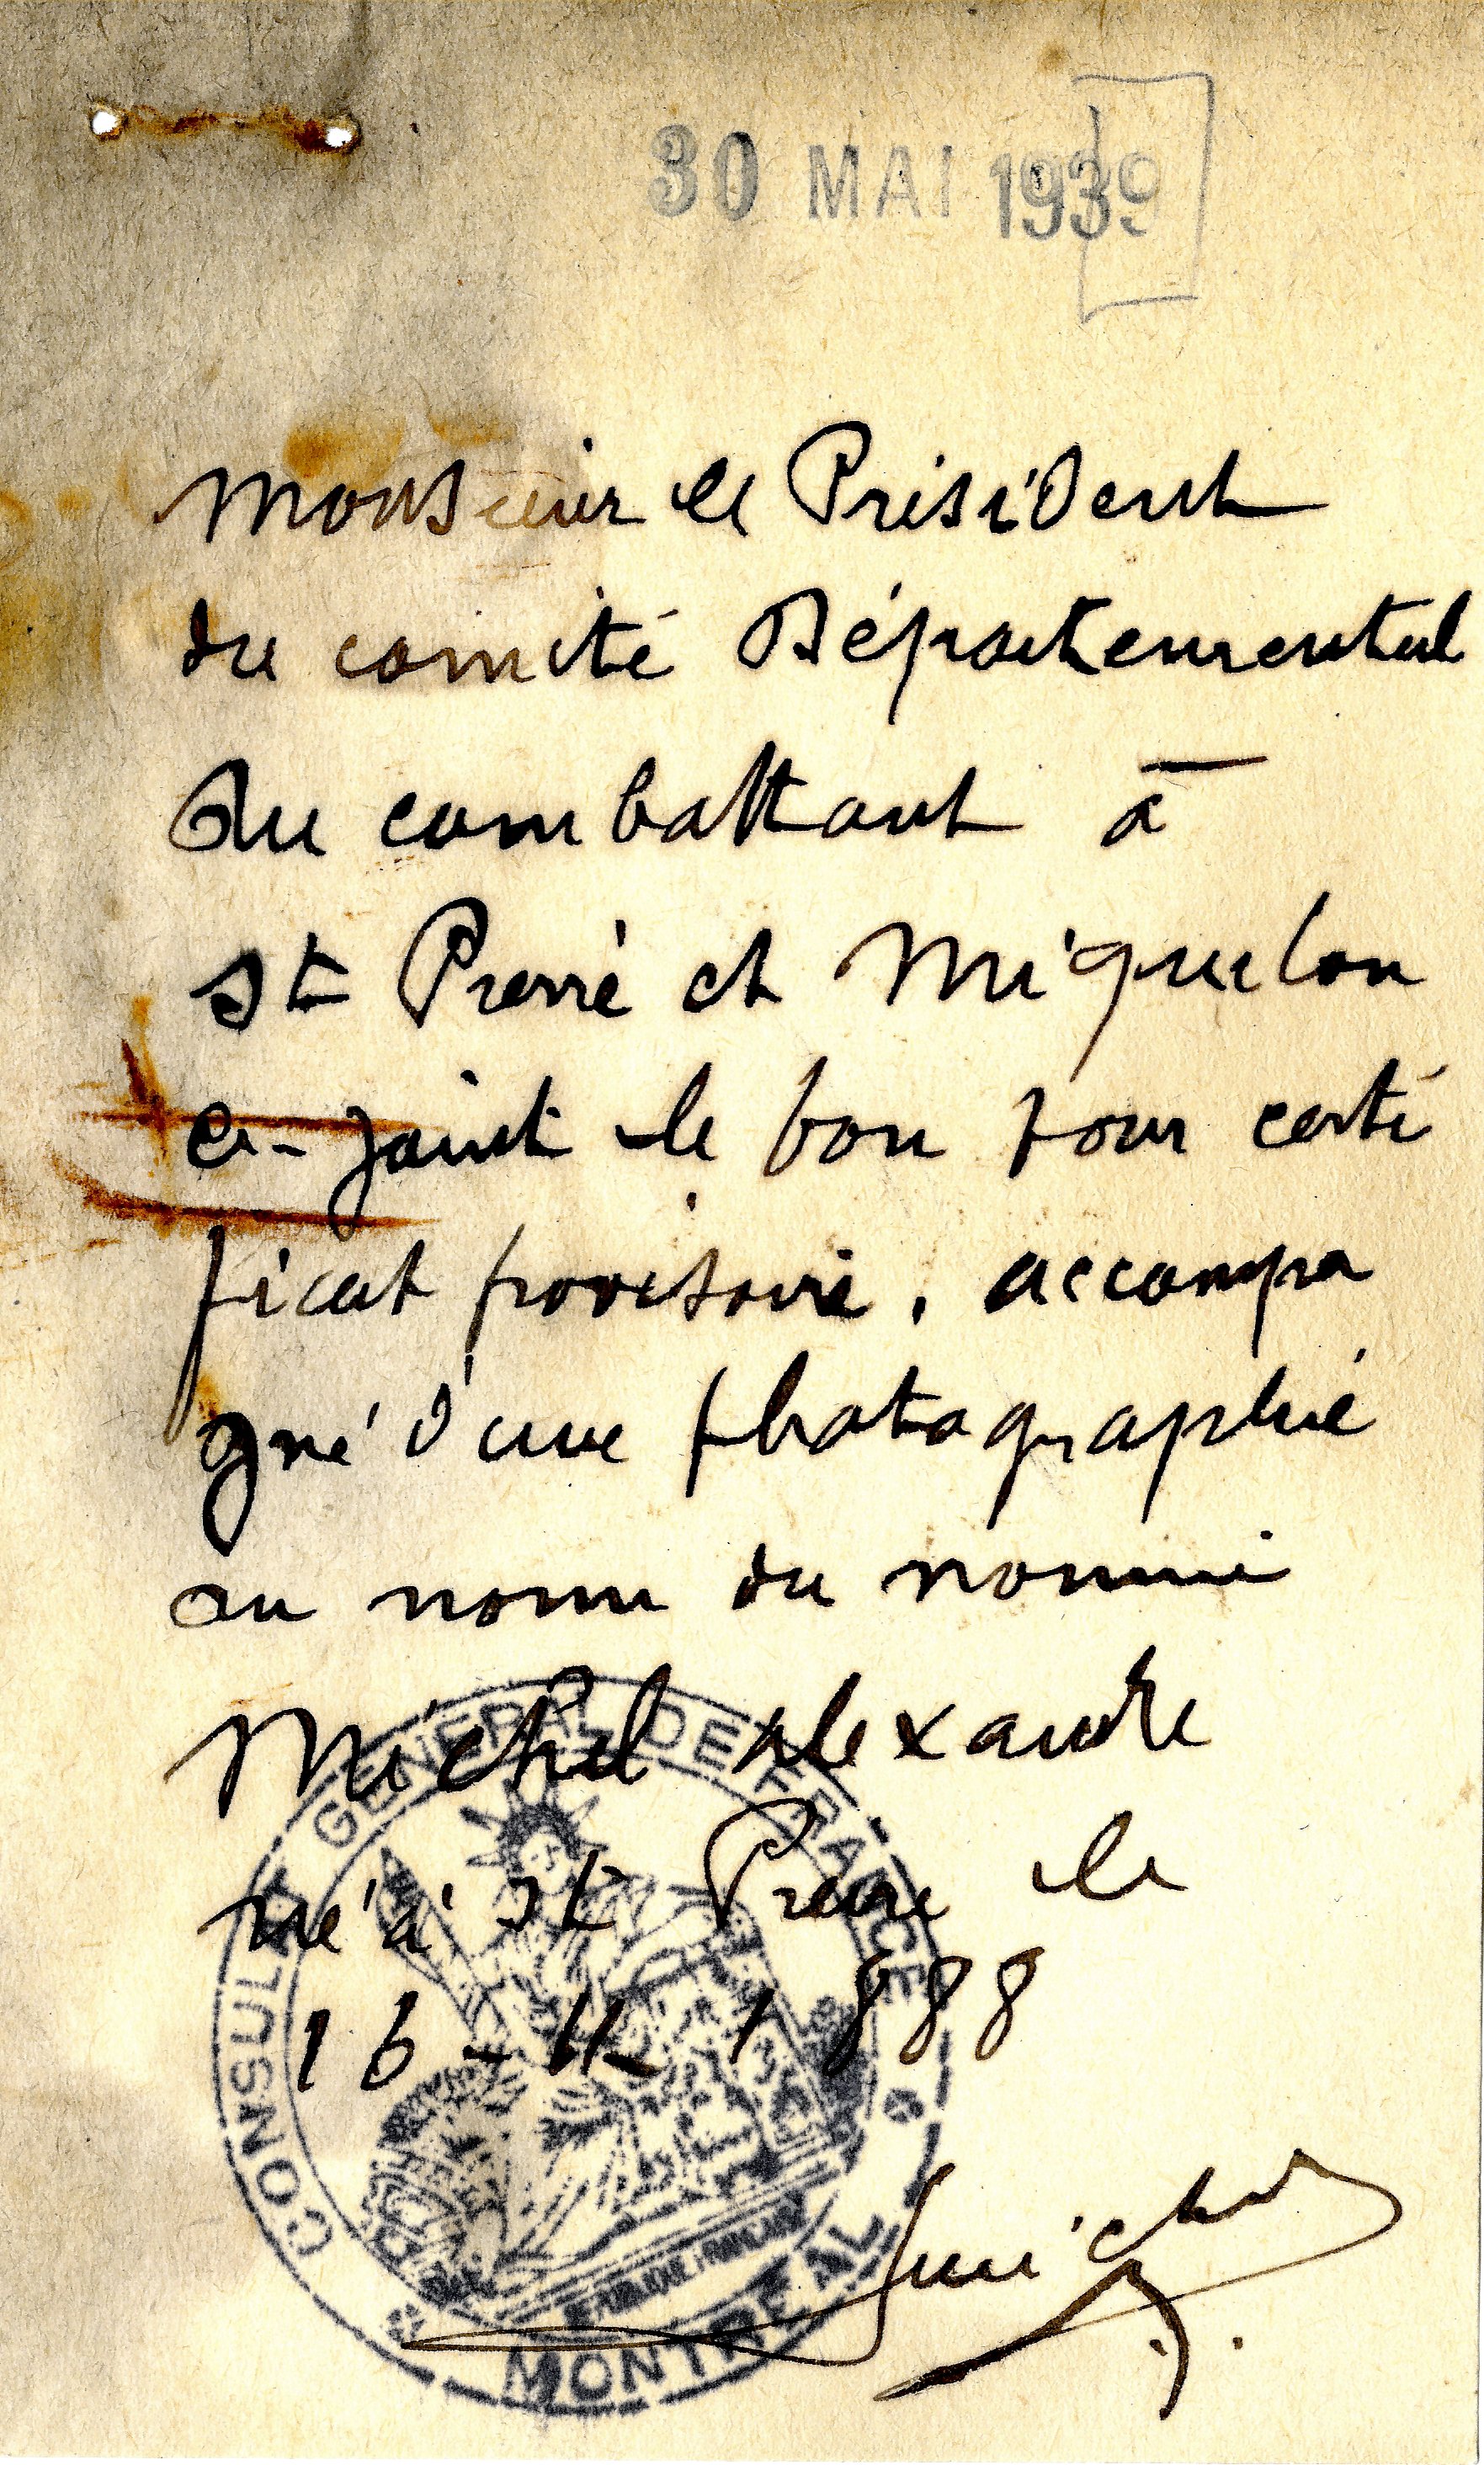 30 MAI 1939
Monsieur le Président
du comité Départemental
Du combattant à
St Pierre et Miquelon
Ci-joint le bon pour certi
ficat provisoire, accompa
gné d'une photographie
au nom du nommé
Michel Alexandre
né à St Pierre le
16-11-1888
CONSULAT GÉNÉRAL DE FRANCE
RÉPUBLIQUE FRANÇAISE
MONTREAL